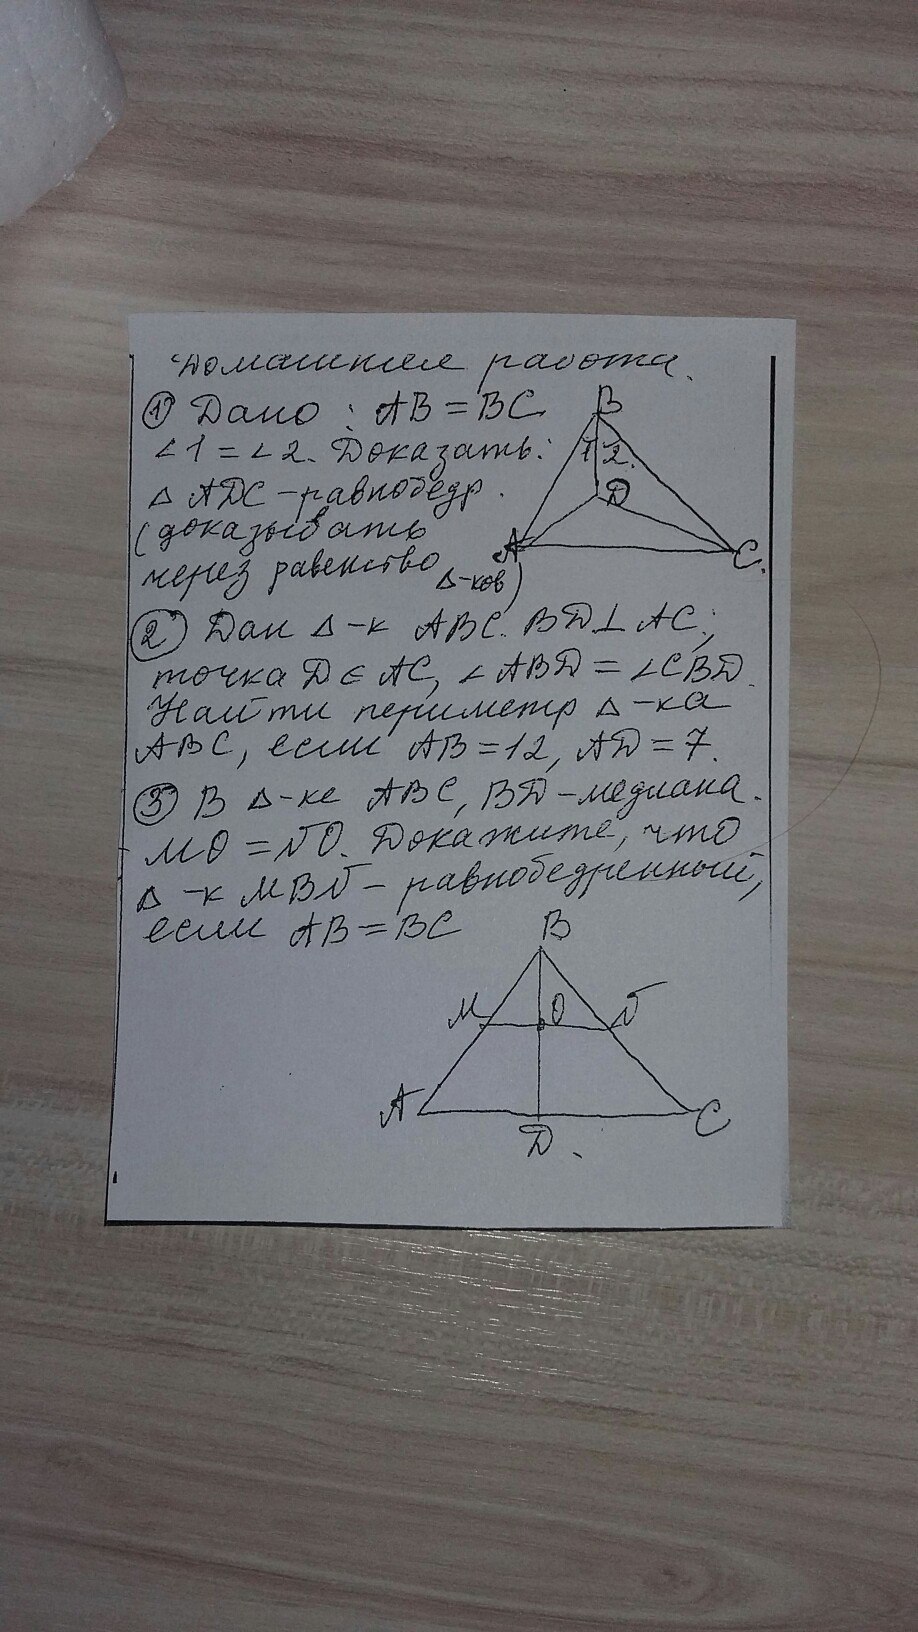 Домашняя работа.
① Дано: AB = BC
∠1 = ∠2. Доказать:
△ ADC – равнобедр.
(доказывать
через равенство
△-ков)
B
1 2.
D
A
C.
② Дан △-к ABC. BD ⊥ AC;
точка D ∈ AC, ∠ABD = ∠CBD.
Найти периметр △-ка
ABC, если AB = 12, AD = 7.
③ В △-ке ABC, BD – медиана.
MO = NO. Докажите, что
△-к MBN – равнобедренный,
если AB = BC
B
M
O
N
A
C
D.